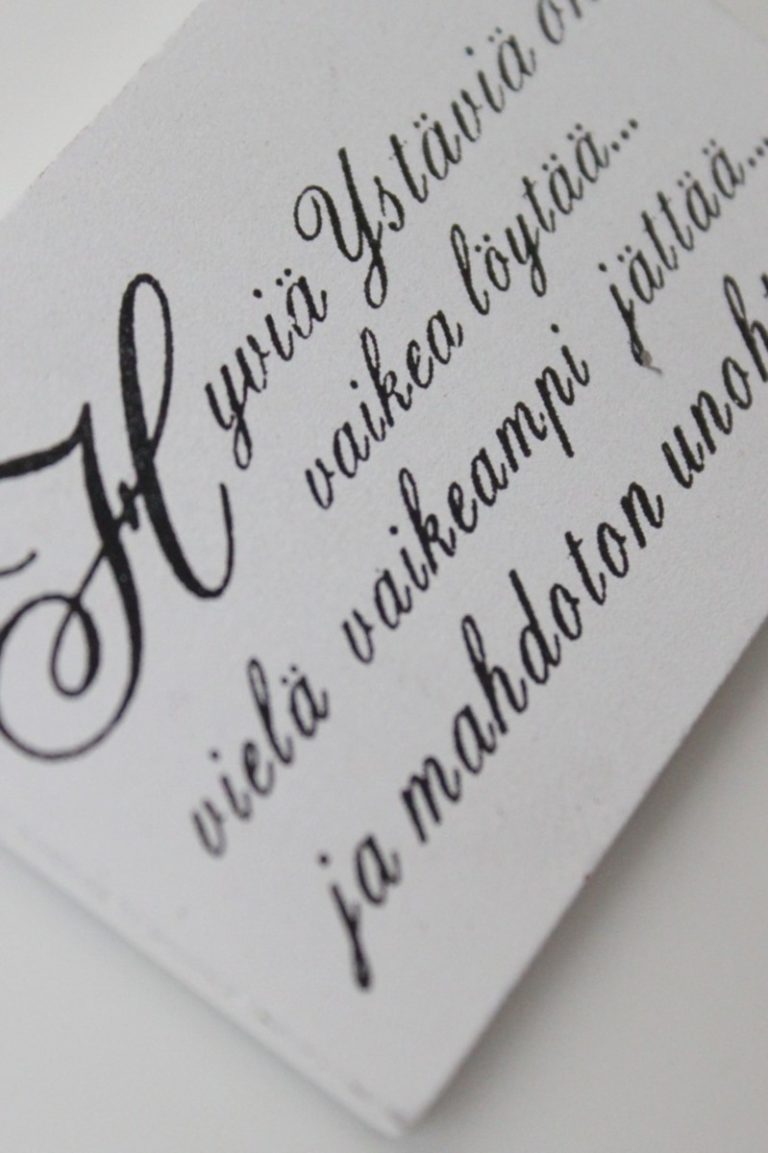 Hyviä Ystäviä on
vaikea löytää...
vielä vaikeampi jättää...
ja mahdoton unoh